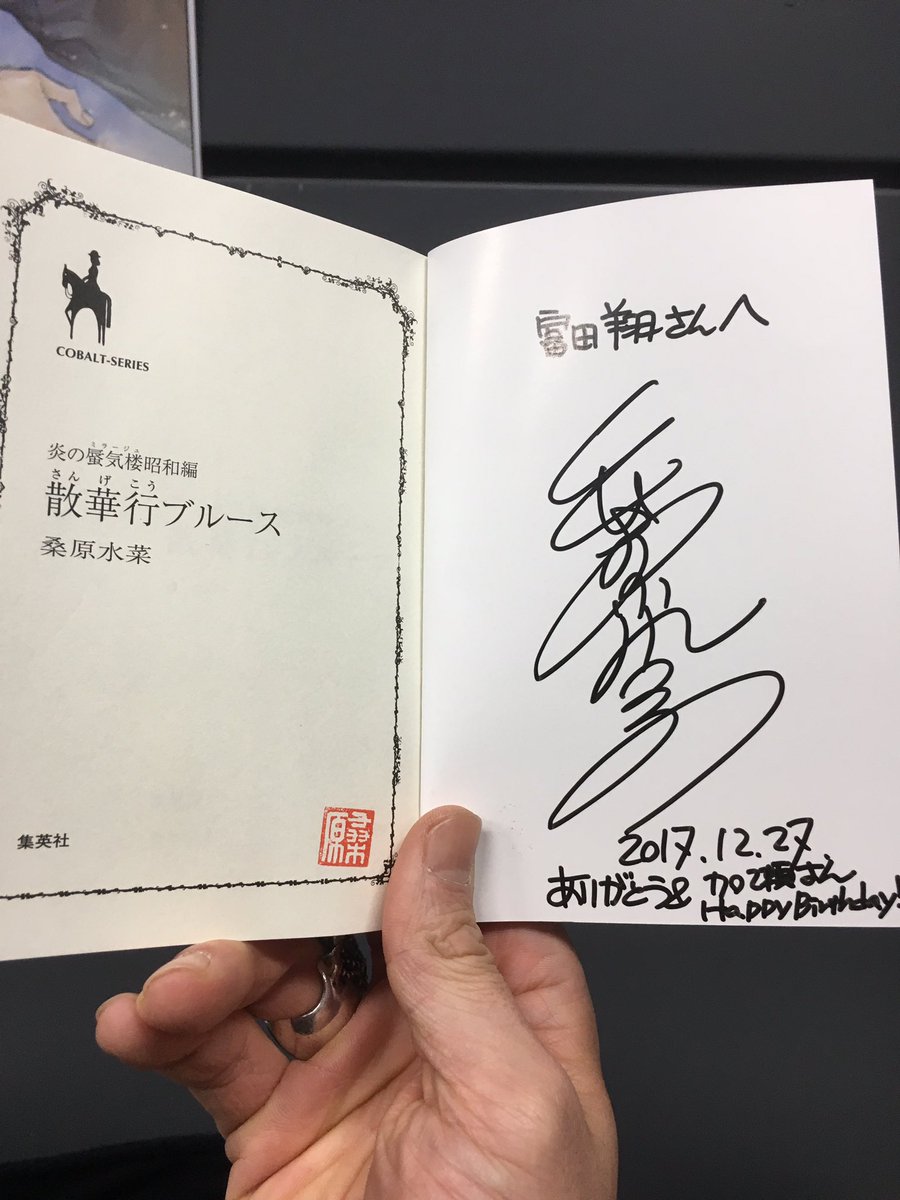 COBALT-SERIES
炎の蜃気楼昭和編
ミラージュ
散華行ブルース
さんげこう
桑原水菜
集英社
富田翔さんへ
2017.12.27
ありがとう&
加瀬さん
Happy Birthday!